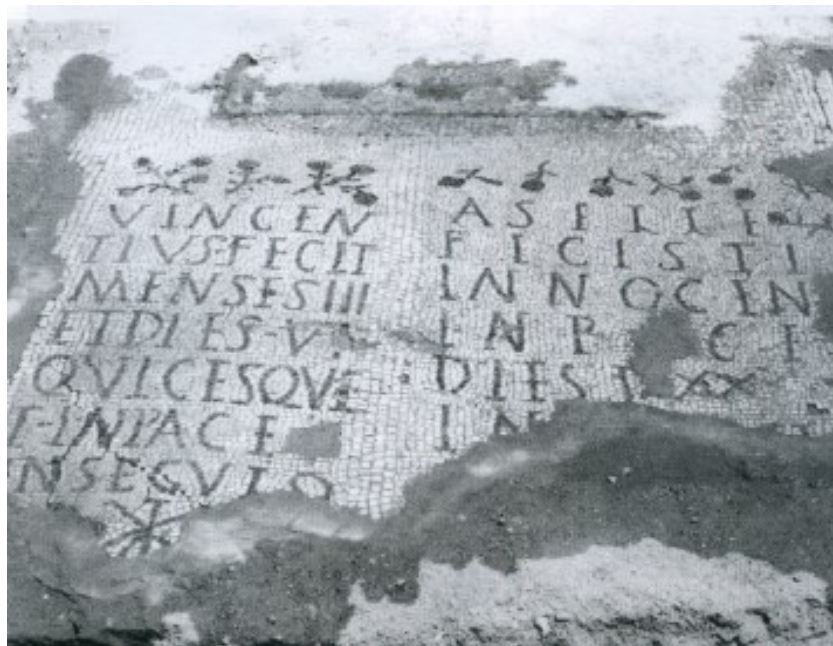 VINCEN
TIVS·FECIT
MENSES III
ET DIES·V
QVICESQVE
T·IN PACE
NSEGVIO
ASELLE
FICISTI
INNOCEN
IN P CE
DIES XX
IN